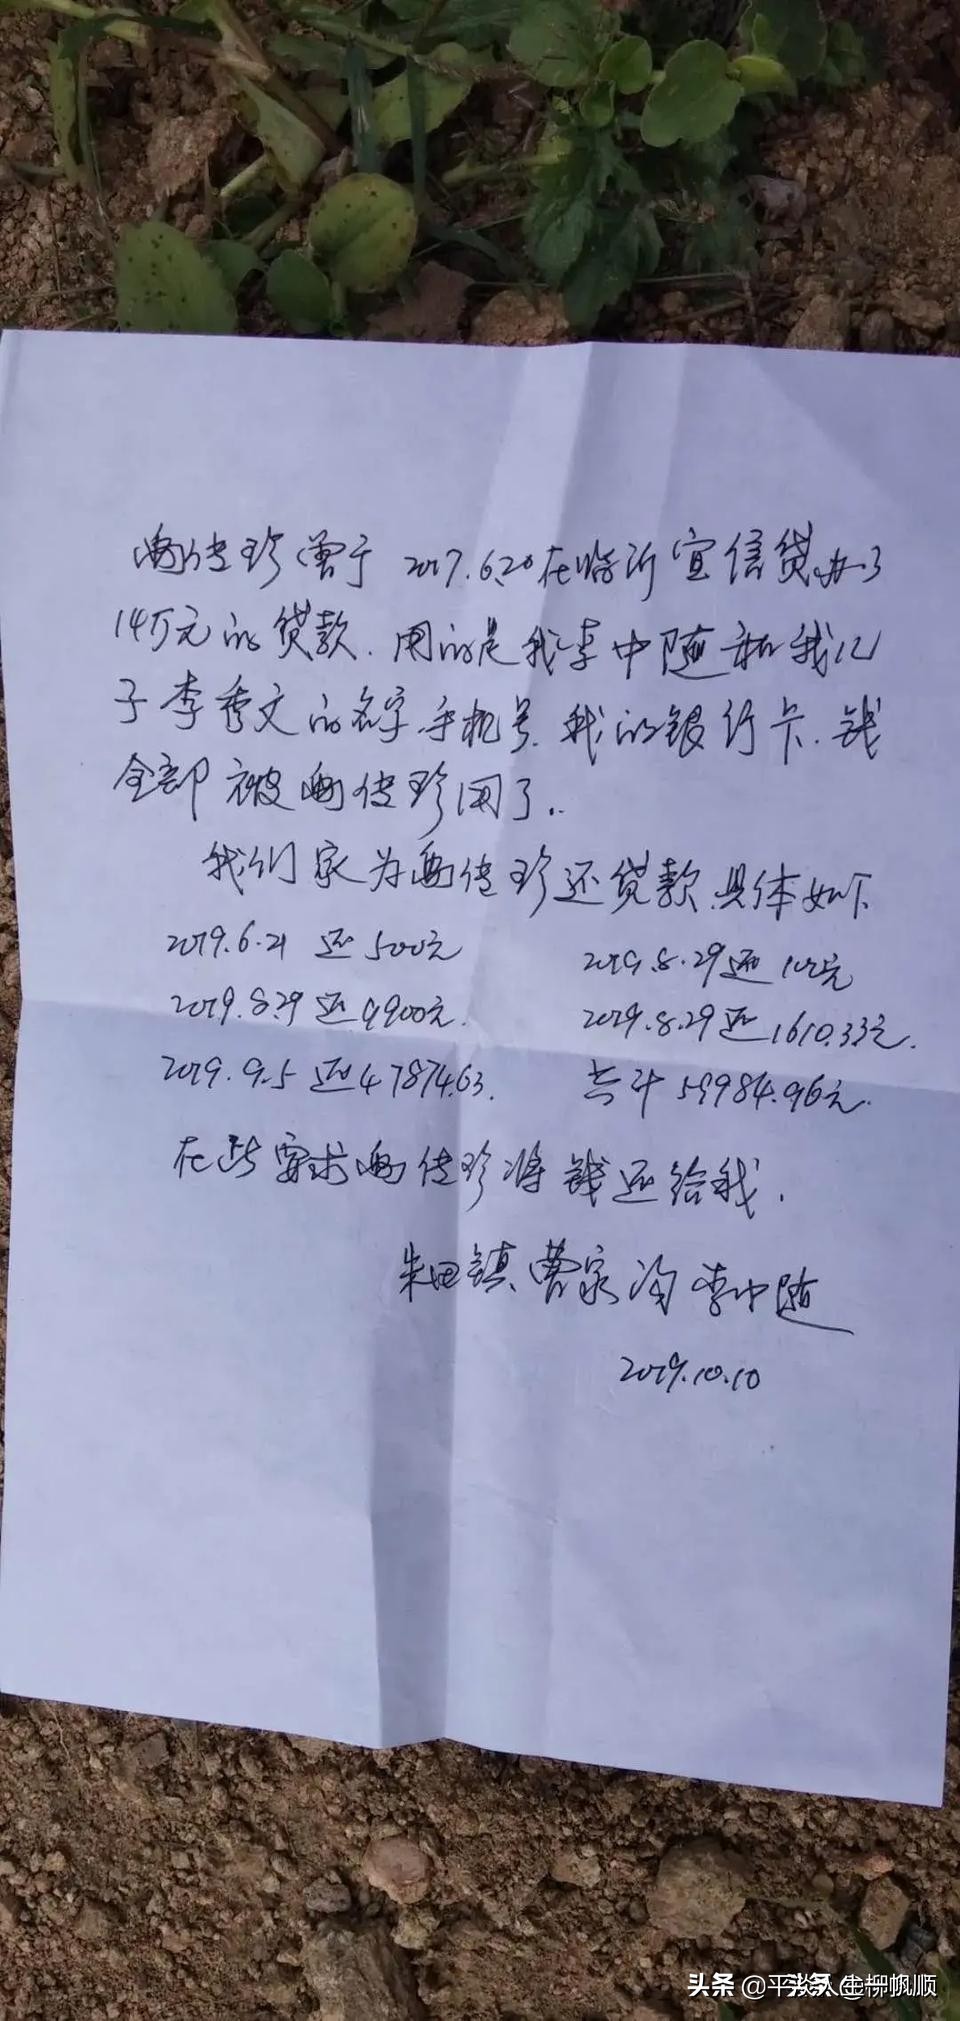 传珍曾于 2017.6.20在临沂宜信贷办了
14万元的贷款.用的是我李中随和我儿
子李秀文的名字.手机号.我的银行卡.钱
全部被传珍用了..
我们家为传珍还贷款.具体如下
2019.6.21 还500元 2019.8.29还100元
2019.8.29 还9900元. 2019.8.29还1610.33元.
2019.9.5 还47874.63. 共计59984.96元.
在此要求传珍将钱还给我.
朱田镇.曹家沟 李中随
2019.10.10
头条 @平淡人生柳帆顺